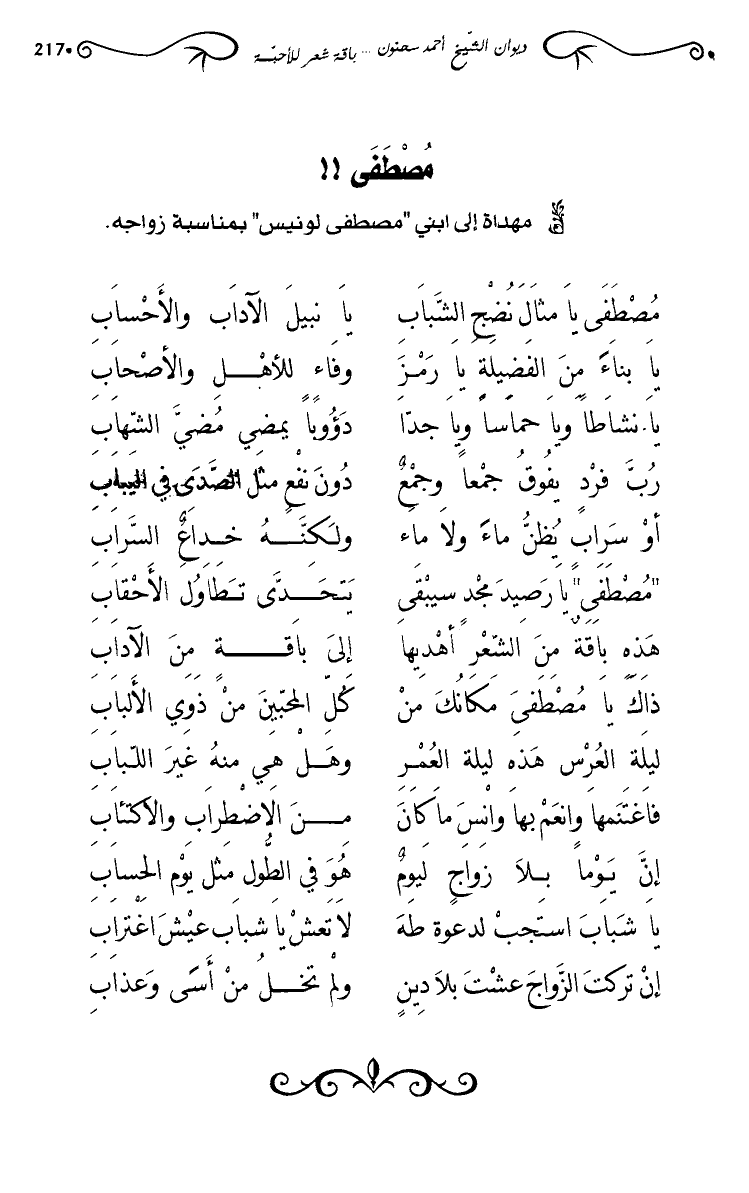 ديوان الشّيخ أحمد سحنون ... باقة شعر للأحبّة 217
مُصْطَفَى !!
مهداة إلى ابني "مصطفى لونيس" بمناسبة زواجه.
مُصْطَفَى يا مثالَ نُضْجِ الشَّبابِ يا نبيلَ الآدابِ والأَحْسابِ
يا بناءً مِنَ الفَضيلةِ يا رَمْزَ وفاء للأهْلِ والأصْحابِ
يا نشاطاً ويا حماساً ويا جدّا دَؤُوباً يمضي مُضيَّ الشّهابِ
رُبَّ فردٍ يفُوقُ جمْعاً وجمْعٌ دُونَ نفْعٍ مثل الصَّدَى في اليبابِ
أوْ سَرابٍ يُظنُّ ماءً ولا ماء ولكنَّهُ خداعُ السَّرابِ
"مُصْطَفَى" يا رَصيدَ مجْدٍ سيبْقى يتحَدَّى تطَاوُلَ الأحْقابِ
هَذهِ باقةٌ منَ الشّعْرِ أهْديها إلىَ باقةٍ منَ الآدابِ
ذاكَ يا مُصْطَفىَ مَكَانُكَ منْ كُلّ المحبّينَ منْ ذَوي الألبابِ
ليلة العُرْس هَذه ليلة العُمْرِ وهَلْ هي منهُ غيرَ اللّبابِ
فاغتَنمها وانعَمْ بها وانْسَ ما كانَ منَ الاِضْطراب والاكتئابِ
إنَّ يَوْماً بلاَ زوَاجٍ ليومٌ هُوَ في الطُّول مثل يوْم الحسابِ
يا شبَابَ استَجبْ لدعوة طهَ لا تعشْ يا شباب عيْشَ اغْترابِ
إنْ تركتَ الزَّواجَ عشْتَ بلاَ دينٍ ولمْ تخلُ منْ أسًى وَعذابِ